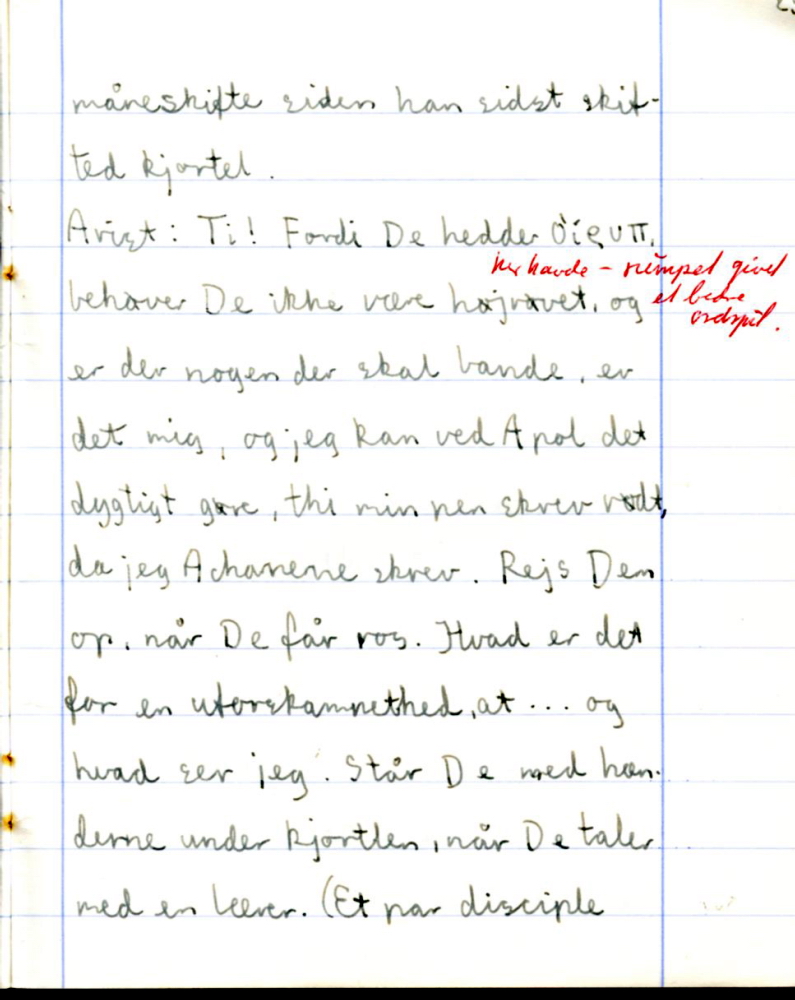 måneskifte siden han sidst skif-
ted kjortel.
Arist: Ti! Fordi De hedder
her havde – rumpet givet
behøver De ikke være højrøvet, og
et bedre
ordspil.
er der nogen der skal bande, er
det mig, og jeg kan ved Apol det
dygtigt gøre, thi min pen skrev rødt,
da jeg Acharnerne skrev. Rejs Dem
op, når De får ros. Hvad er det
for en uforskamnethed, at ... og
hvad ser jeg. Står De med hæn-
derne under kjortlen, når De taler
med en lærer. (Et par disciple